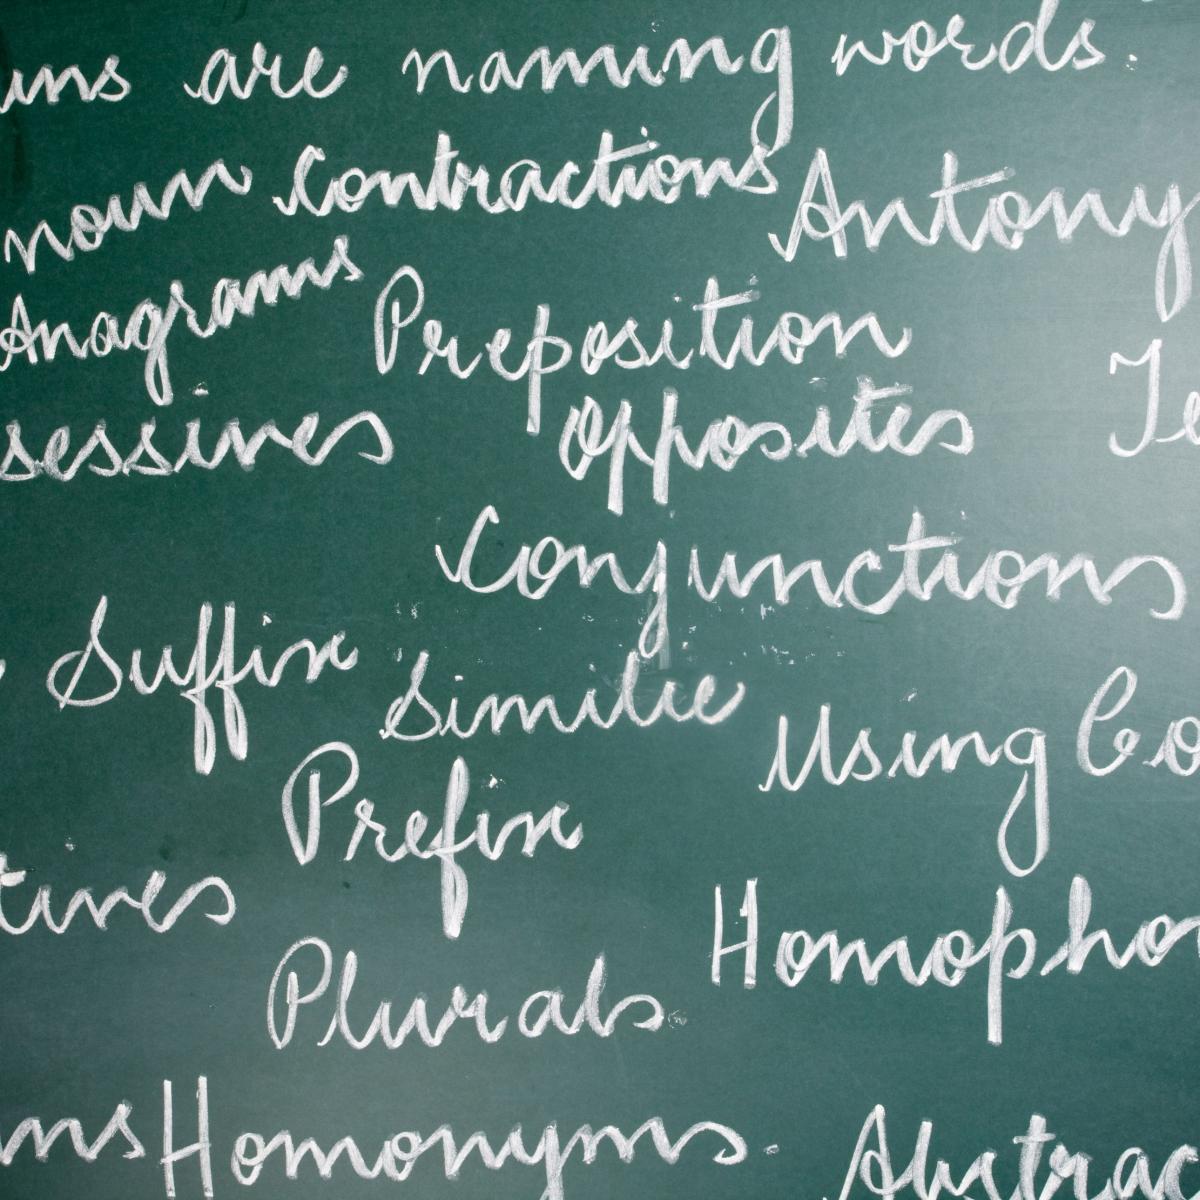 uns are naming words.
noun Contractions Antony
Anagrams Preposition
sessives opposites Te
Conjunctions
Suffix Similie
Using Co
Prefix
tives Homopho
Plurals
ms Homonyms. Abstrac